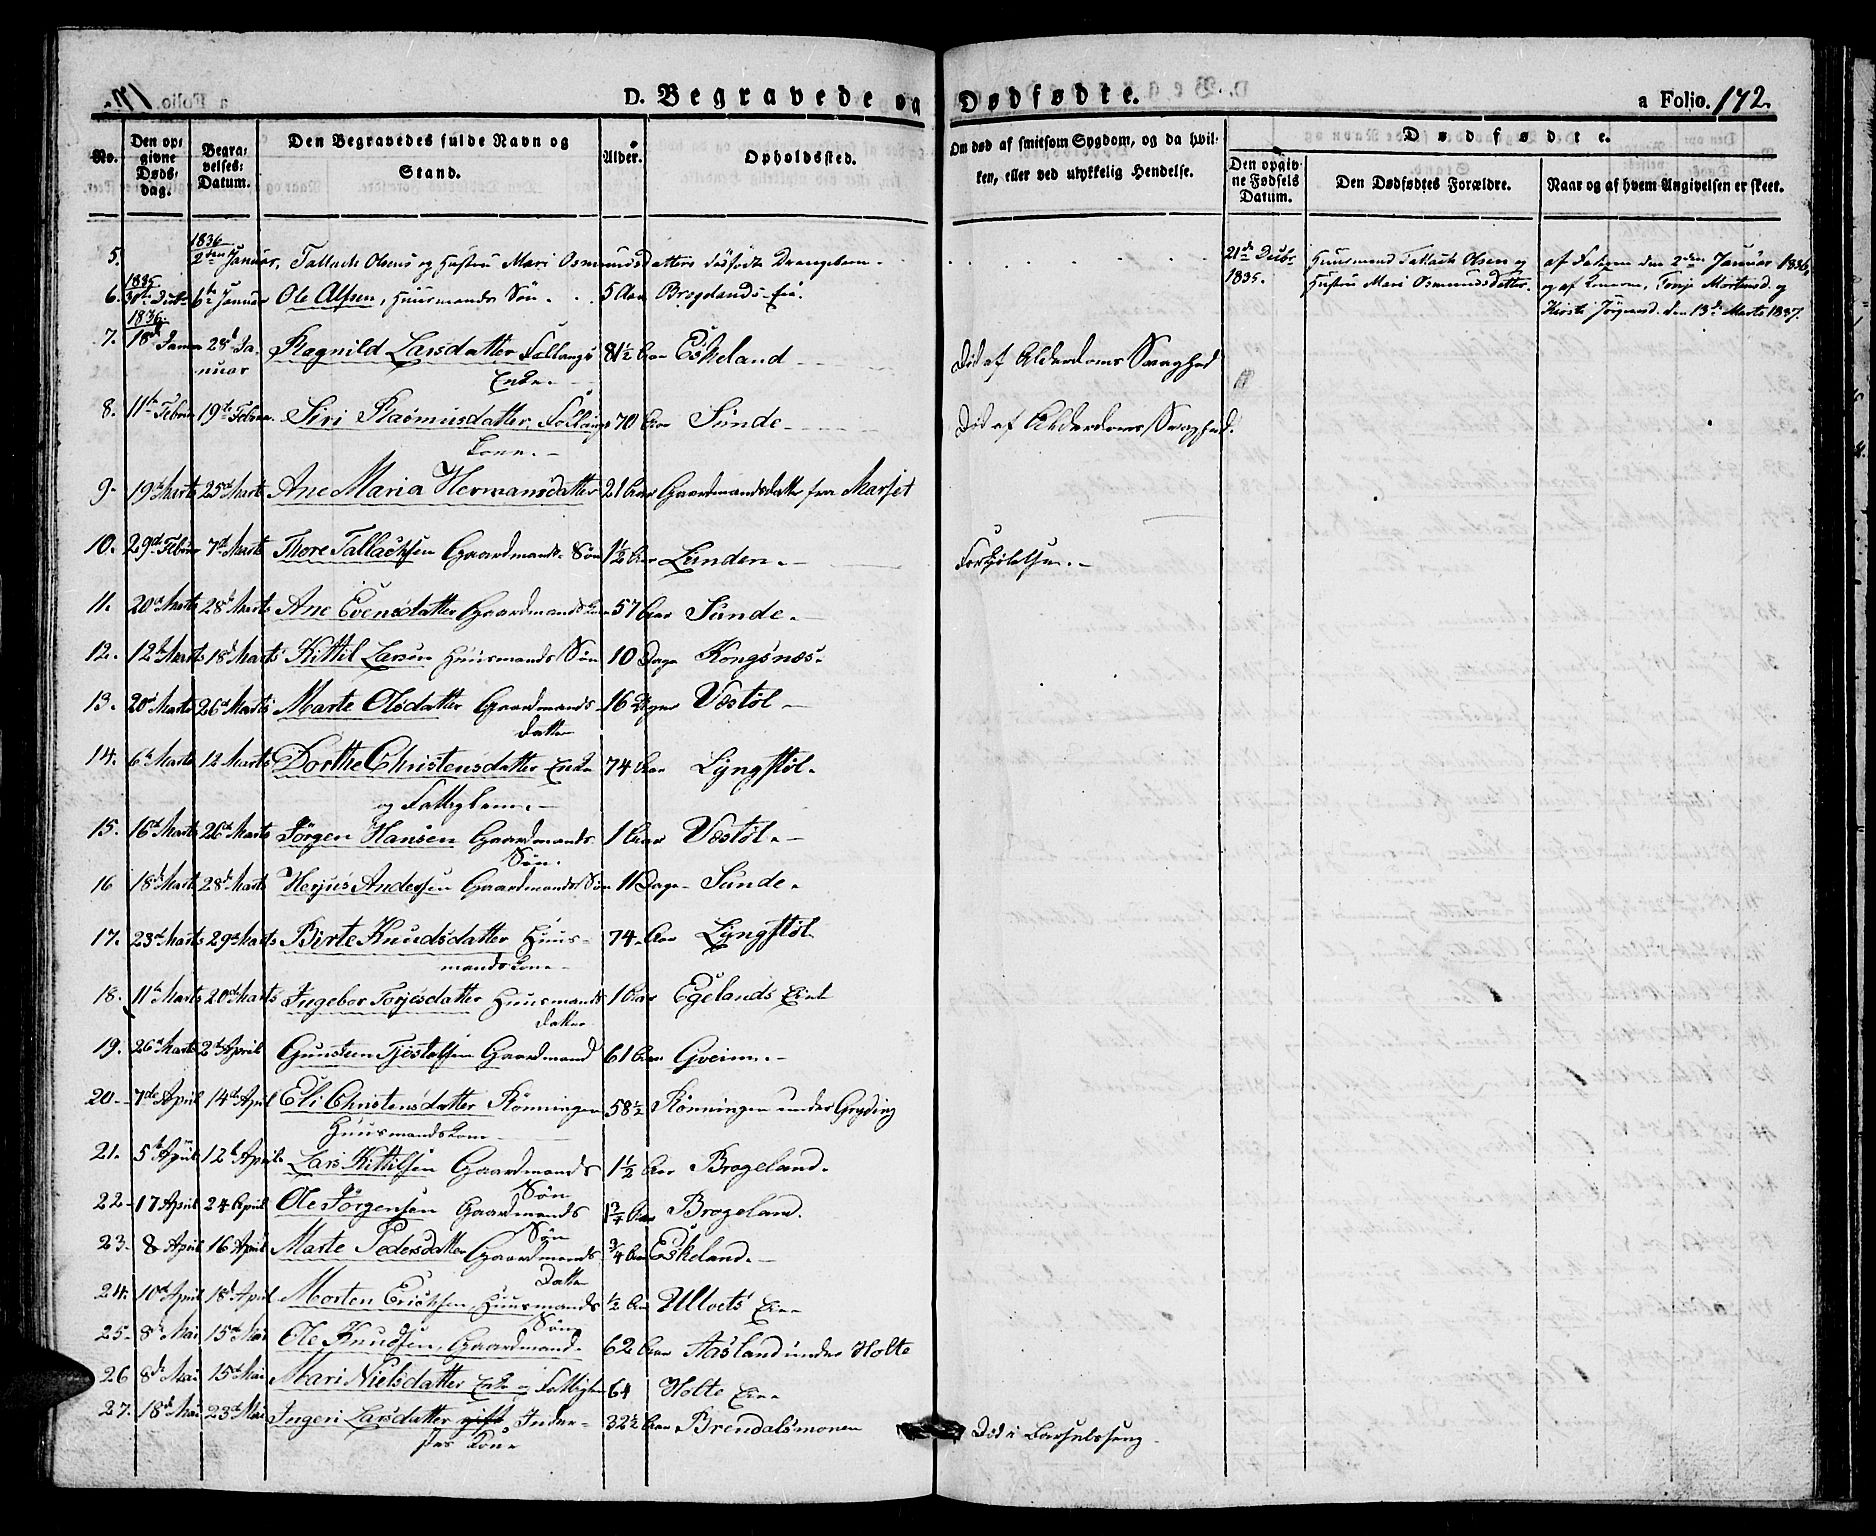 D. Begravede og Dødfødte.
a Folio. 142.
No.
Den opgivne Dødsdag.
Begravelses Datum.
Den Begravedes fulde Navn og Stand.
Alder.
Opholdssted.
Om død af smitsom Sygdom, og da hvilken, eller ved ulykkelig Hendelse.
Dødfødte.
Den opgivne Fødsels Datum.
Den Dødfødtes Forældre.
Naar og af hvem Angivelsen er skeet.
5. 1836 2den Januar, Tallack Olsens og Hustru Mari Osmundsdatters dødfødte Drengebarn. 21de Decbr 1835. Huusmand Tallack Olsen og Hustru Mari Osmundsdatter. af Faderen den 2den Januar 1836,
6. 1835 6te Januar Ole Alfsen, Huusmands Søn 5 Aar Brogelands Eie.
7. 1836. 18de Januar 28de Januar Ragnild Larsdatter Enke. 81½ Aar Eskeland Død af Alderdoms Svaghed
8. 11te Februar 19de Februar Siri Rasmusdatter, Kone. 70 Aar Sunde Død af Alderdoms Svaghed.
9. 19de Marts 25de Marts Ane Maria Hermansdatter 21 Aar Gaardmandsdatter fra Marset
10. 29de Februar 7de Marts Thore Tallacksen Gaardmands Søn 1½ Aar Lunden. Forkjølelsen.
11. 20de Marts 28de Marts Ane Evensdatter Gaardmands Kone 57 Aar Sunde.
12. 12te Marts 18de Marts Kittil Larsen Huusmands Søn 10 Dage Kongsnæs.
13. 20de Marts 26de Marts Marte Olsdatter Gaardmands Datter 16 Dager Væstøl
14. 6te Marts 12 Marts Dorthe Christensdatter Enke og Fattiglem. 74 Aar Lyngstøl.
15. 16de Marts 26de Marts Jørgen Hansen Gaardmands Søn. 1 Aar Væstøl.
16 18de Marts 28de Marts Herjus Andersen Gaardmands Søn 11 Dage Sunde.
17. 23de Marts 29de Marts Birte Knudsdatter Huusmandskone 74 Aar Lyngstøl
18. 11te Marts 20de Marts Ingebor Torjesdatter Huusmands Datter 1 Aar Egelands Eie
19. 26de Marts 2de April Gunsteen Tjøstolfsen Gaardmand 61 Aar Gveim.
20. 7de April 14de April Eli Christensdatter Rønningen Huusmandskone 58½ Rønningen under Gryting
21. 5te April 12te April Lars Kittilsen Gaardmands Søn 1½ Aar Brogeland.
22. 17 April 24 April Ole Jørgensen Gaardmands Søn Aar Brogeland.
23. 8 April 16 April Marte Pedersdatter Gaardmands Datter ¾ Aar Eskeland.
24. 10de April 18de April Morten Ericksen Huusmands Søn ½ Aar Ulvets Eie
25. 8de Mai 15de Mai Ole Knudsen, Gaardmand. 62 Aar Aasland under Holte
26 8de Mai 15de Mai Mari Nielsdatter Enke og Fattiglem 64 Holte Eie
27. 18de Mai 23de Mai Ingeri Larsdatter gift, Inderstes Kone 32½ Aar Brendalsmonen Død i Barselseng.